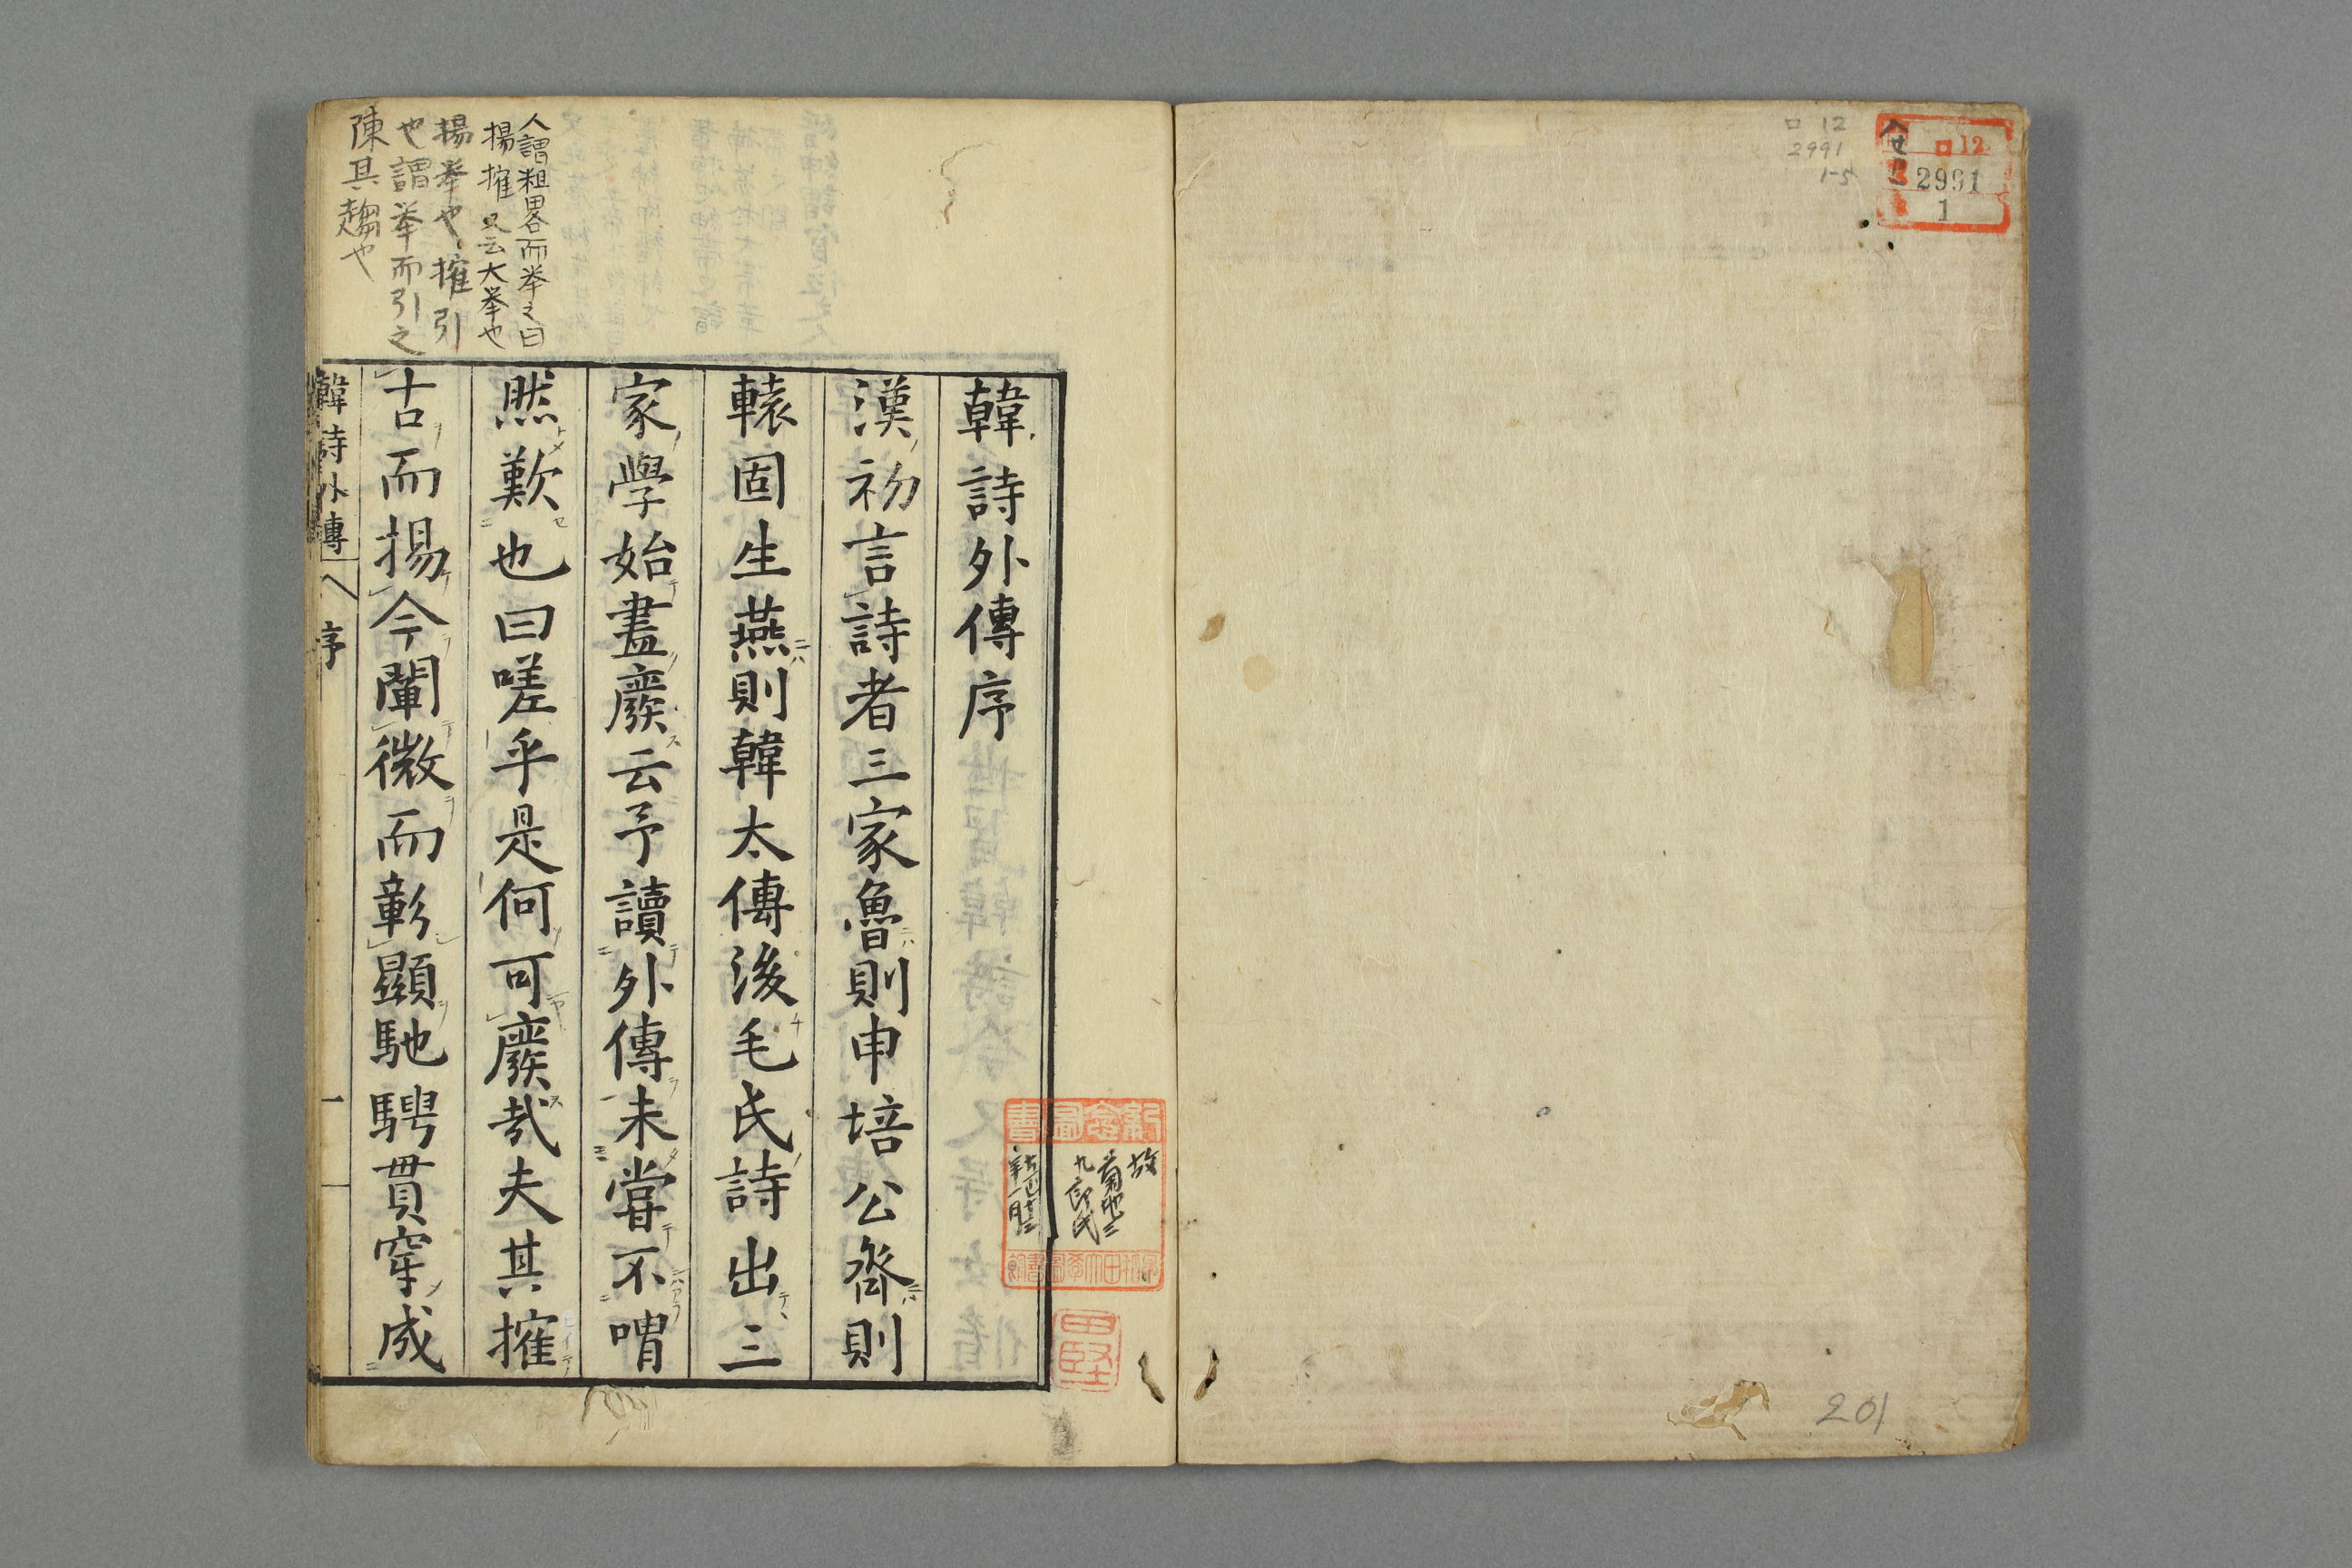 ロ 12
2991
1-5
ロ 12
2991
1
201
韓詩外傳序
漢初言詩者三家魯則申培公齊則
轅固生燕則韓太傳後毛氏詩出三
家學始盡廢云予讀外傳未嘗不喟
然歎也曰嗟乎是何可廢哉夫其搉
古而揚今闡微而彰顯馳騁貫穿成
韓詩外傳
序
一
人謂粗畧而挙之曰
揚搉 又云大挙也
揚挙也搉引
也謂挙而引之
陳其趨也
故
菊池三
九郎氏